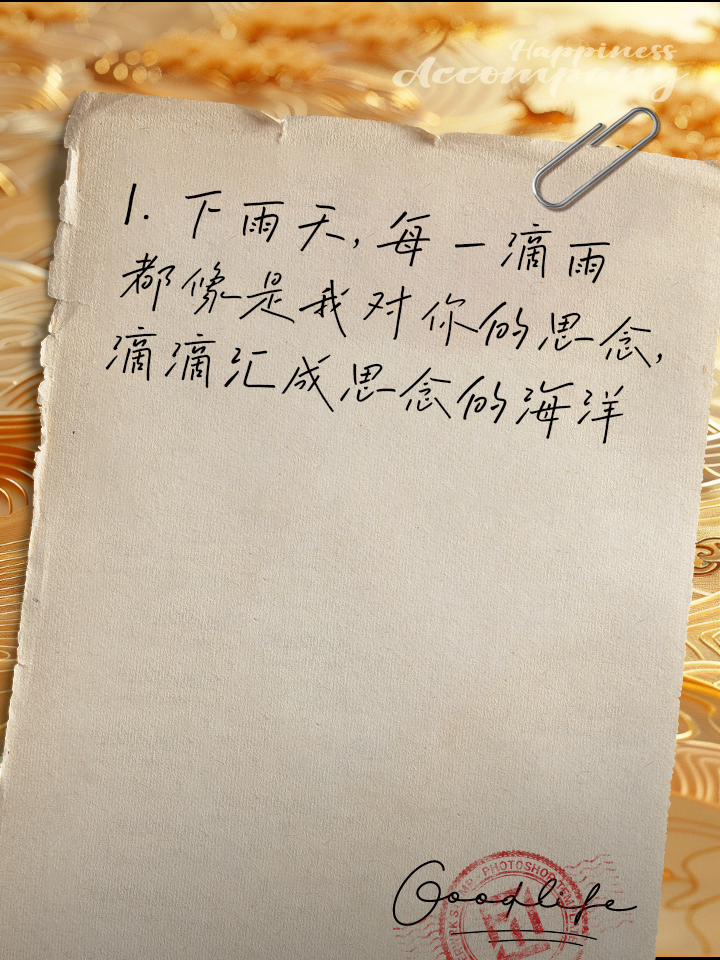 Happiness
Accompany
1. 下雨天,每一滴雨
都像是我对你的思念,
滴滴汇成思念的海洋
Goodlife